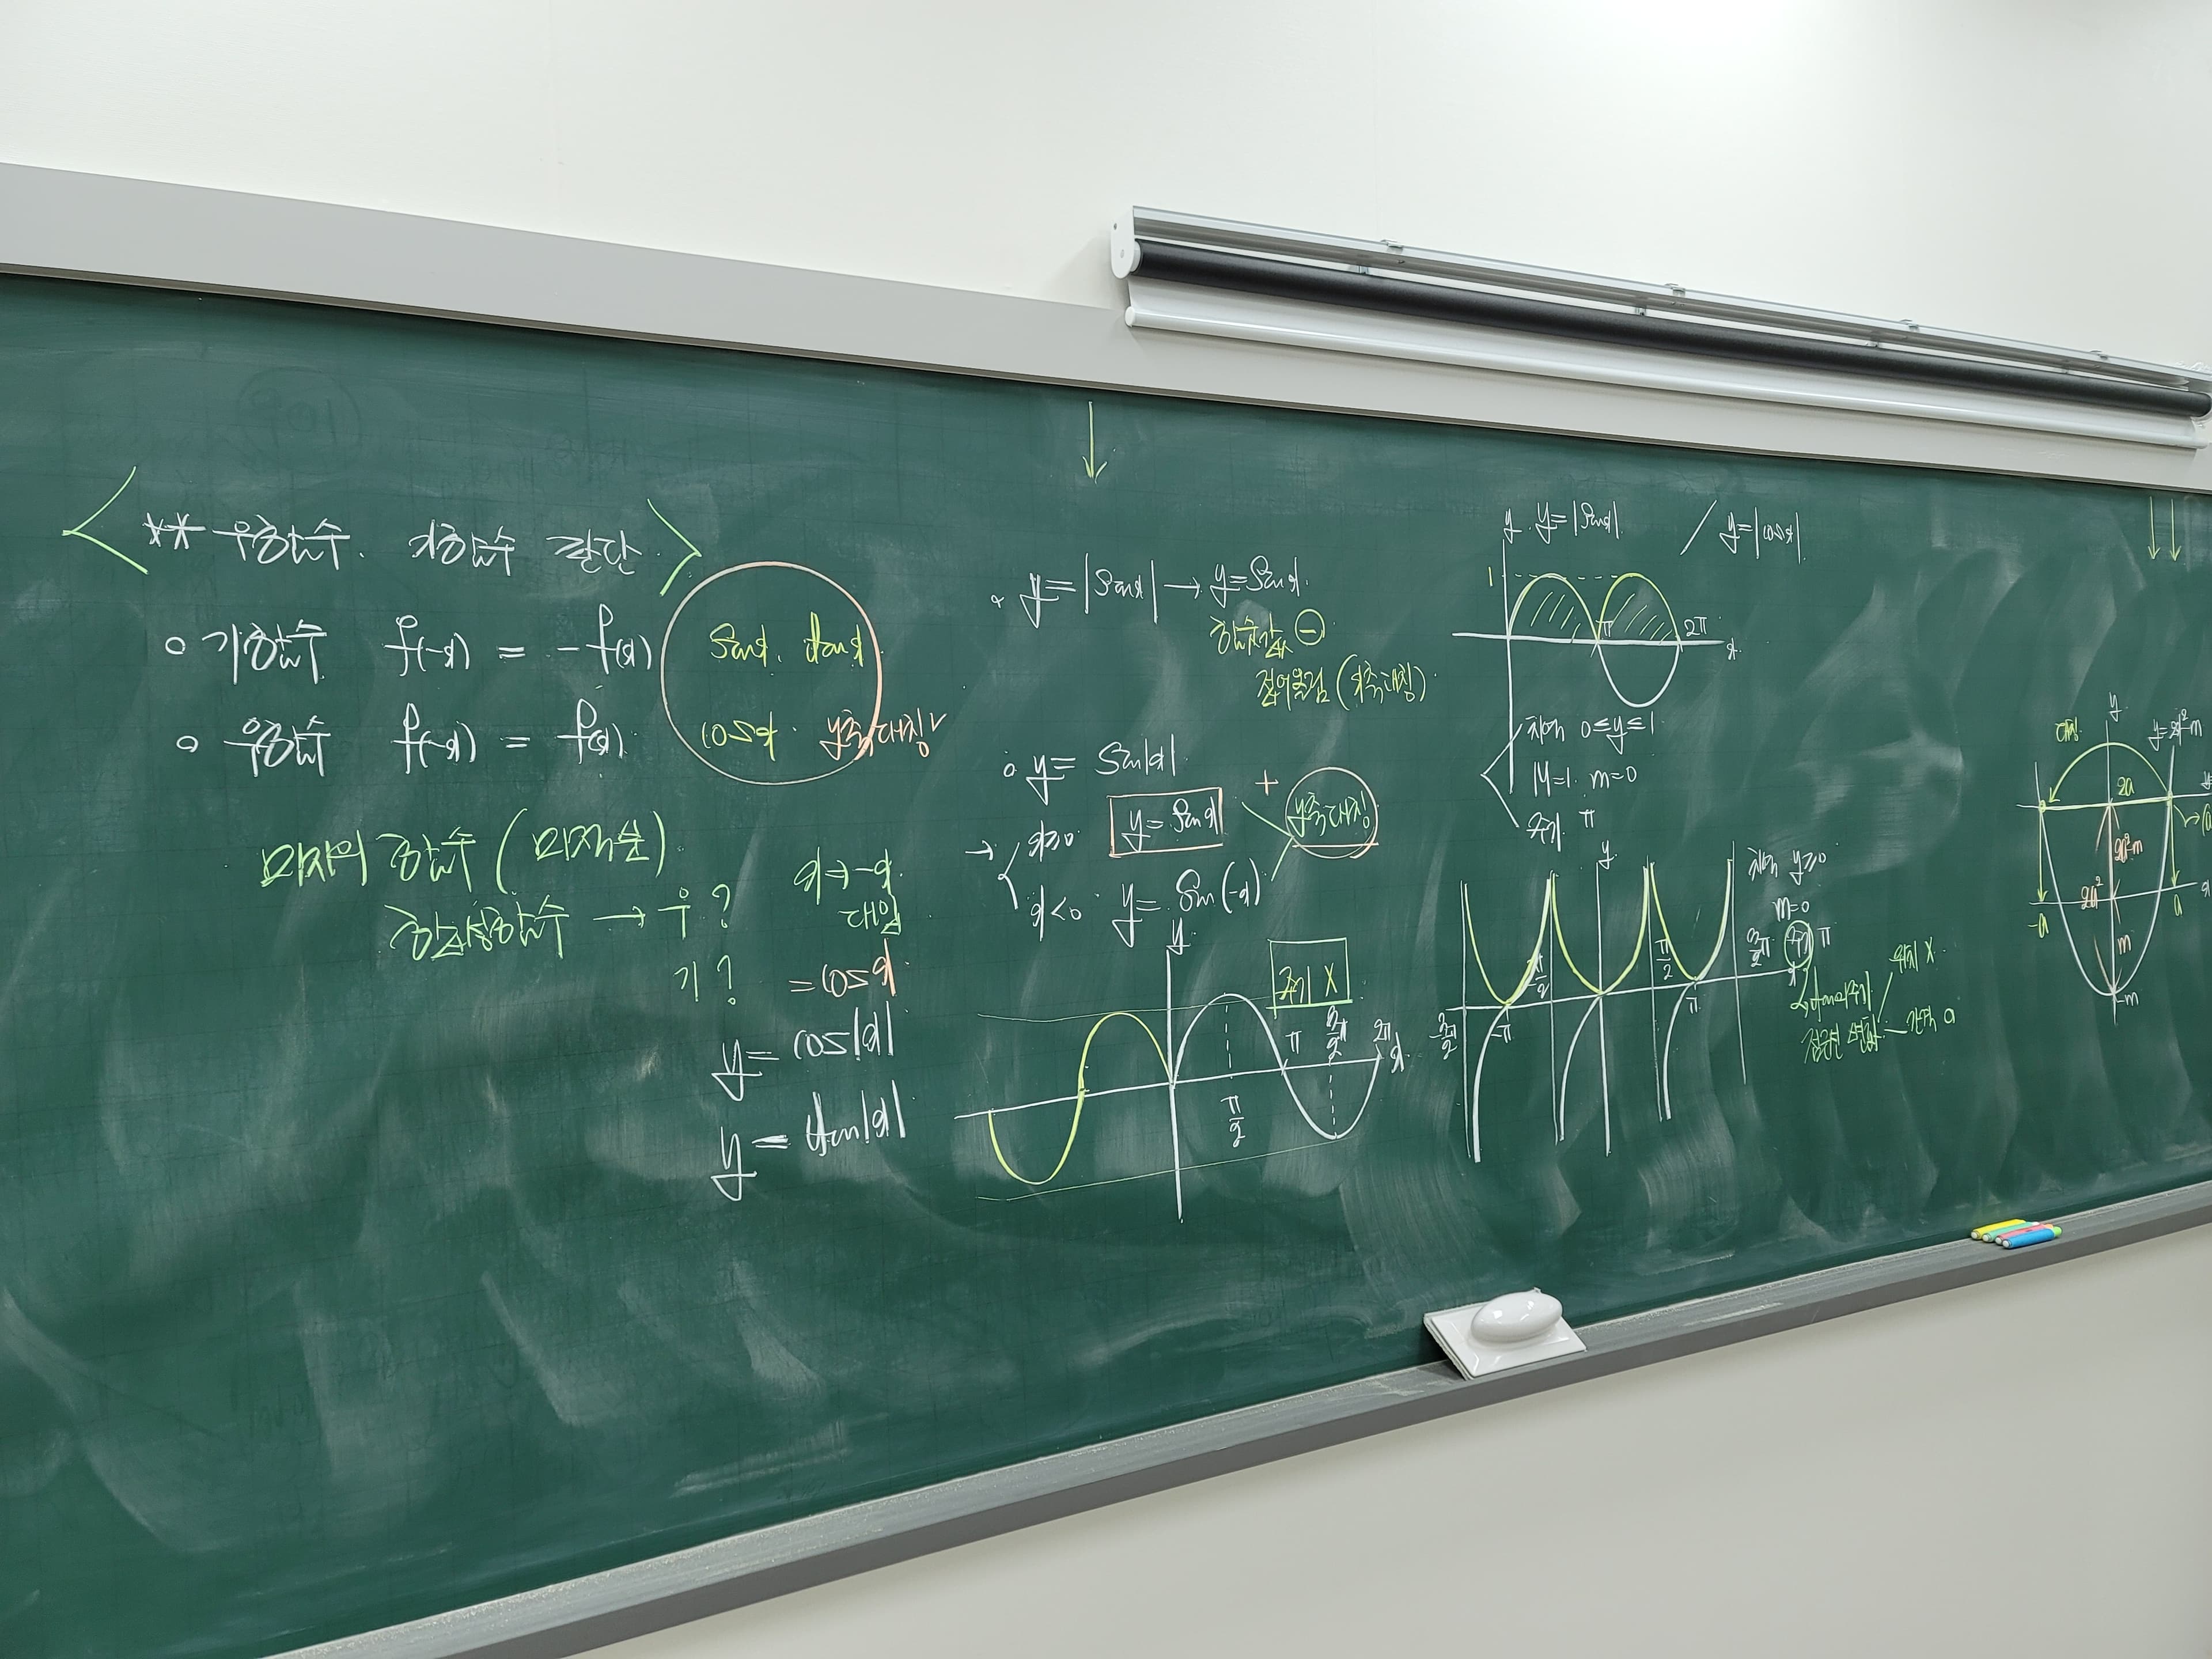 ** 우함수. 기함수 판단
○ 기함수 f(-x) = -f(x) sinx. tanx
○ 우함수 f(-x) = f(x) cosx. y축대칭✓
미지의 함수 (미지수)
합성함수 → 우?
기?
x→-x.
대입
= cosx
y= cos|x|
y= tan|x|
○ y=|sinx| → y=sinx.
함수값 ⊖
접어올림 (x축대칭)
○ y= sin|x|
→ x≥0 y= sinx + y축대칭
x<0. y= sin(-x)
y
주기 X
π/2 π 3/2π 2π x
y. y=|sinx|. / y=|cosx|.
1 π 2π x
치역 0≤y≤1
M=1. m=0
주기 π
y
치역 y≥0
m=0
주기 π
-3/2π -π -π/2 π/2 π 3/2π x
tan의 주기
점근선 위치 X
간격 a
y
대칭 y=2x²-m
2a
2a²-m
2a²
-a a
m
-m